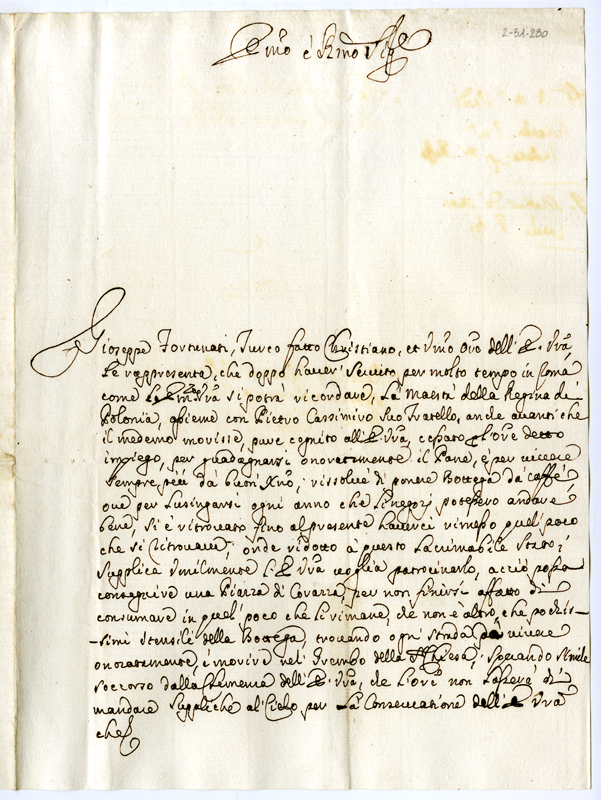 2-51-280
Emo è Rmo Sigre
Gioseppe Fortunati, Turco fatto Christiano, et Umo Oro dell'E. Vra,
Le rappresenta, che doppo haver' Servito per molto tempo in Roma
come l'E. Vra Si potrà ricordare, La Maestà della Regina di
Polonia, assieme con Pietro Cassimiro Suo Fratello, anche avanti che
il medemo morisse, pure cognito all'E. Vra, cessato l'Ore detto
impiego, per guadagnarsi onoratamente il Pane, e per vivere
Sempre più da buon Xno, rissolvè di ponere Bottega da caffè,
ove per Lusingarsi ogni anno che li negozj potessero andare
bene, Si è ritrovato fino al presente haverci rimesso quel poco
che si ritrovava, onde ridotto à questo Lacrimabile Stato,
Supplica Umilmente l'E. Vra voglia patrocinarlo, acciò possa
conseguire una Piazza di Corazza, per non finirsi affatto di
consumare in quel poco che li rimane, che non è altro, che pochis-
-simi Stensili della Bottega, trovando ogni Strada da vivere
onoratamente, è morire nel Grembo della Sta Chiesa, Sperando Simile
Soccorso dalla Clemenza dell'E. Vra, che l'Ore non lasserà di
mandare Suppliche al Cielo per La Conservatione dell'E. Vra
che